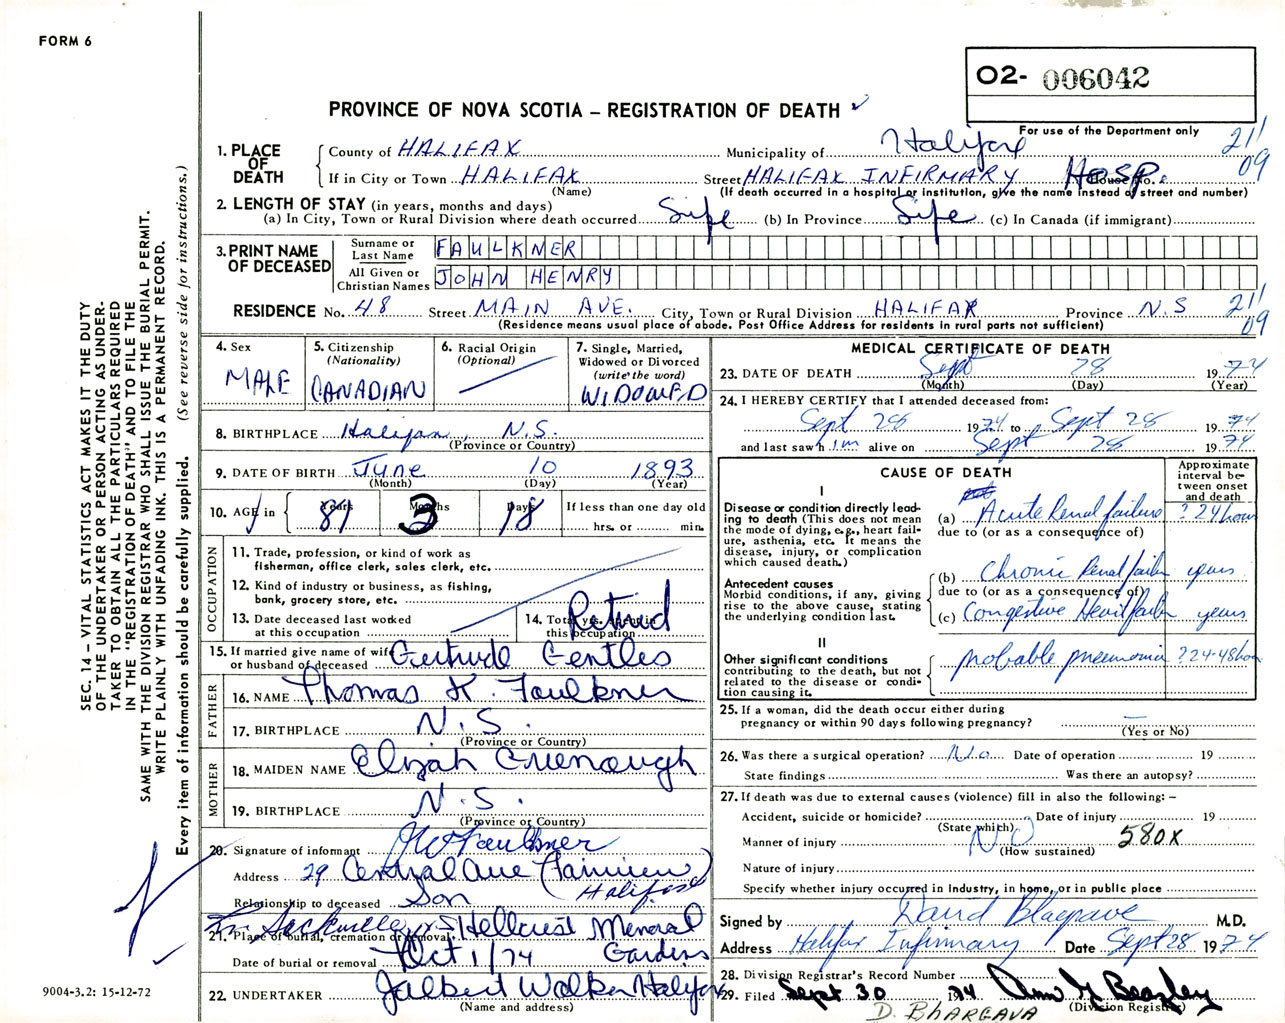 FORM 6
O2- 006042
PROVINCE OF NOVA SCOTIA – REGISTRATION OF DEATH ✓
For use of the Department only
21/
09
1. PLACE OF DEATH
County of HALIFAX Municipality of Halifax
If in City or Town HALIFAX Street HALIFAX INFIRMARY HOSP.
(Name) (If death occurred in a hospital or institution, give the name instead of street and number)
2. LENGTH OF STAY (in years, months and days)
(a) In City, Town or Rural Division where death occurred Life (b) In Province Life (c) In Canada (if immigrant)
3. PRINT NAME OF DECEASED
Surname or Last Name FAULKNER
All Given or Christian Names JOHN HENRY
RESIDENCE No. 48 Street MAIN AVE. City, Town or Rural Division HALIFAX Province N.S
21/
09
(Residence means usual place of abode. Post Office Address for residents in rural parts not sufficient)
4. Sex
MALE
5. Citizenship
(Nationality)
CANADIAN
6. Racial Origin
(Optional)
7. Single, Married,
Widowed or Divorced
(write the word)
WIDOWED
8. BIRTHPLACE Halifax, N.S.
(Province or Country)
9. DATE OF BIRTH June 10 1893
(Month) (Day) (Year)
10. AGE in 81 Years 3 Months 18 Days
If less than one day old
hrs. or min.
OCCUPATION
11. Trade, profession, or kind of work as
fisherman, office clerk, sales clerk, etc.
12. Kind of industry or business, as fishing,
bank, grocery store, etc.
13. Date deceased last worked
at this occupation
14. Total yrs. spent in
this occupation
Retired
15. If married give name of wife
or husband of deceased Gertrude Gentles
FATHER
16. NAME Thomas K. Faulkner
17. BIRTHPLACE N.S.
(Province or Country)
MOTHER
18. MAIDEN NAME Elizah Greenough
19. BIRTHPLACE N.S.
(Province or Country)
20. Signature of informant Faulkner
Address 29 Central Ave (Fairview) Halifax
Relationship to deceased Son
21. Place of burial, cremation or removal Sackville Hillcrest Memorial
Gardens
Date of burial or removal Oct 1/74
22. UNDERTAKER Walker Halifax
(Name and address)
MEDICAL CERTIFICATE OF DEATH
23. DATE OF DEATH Sept 28 1974
(Month) (Day) (Year)
24. I HEREBY CERTIFY that I attended deceased from:
Sept 28 1974 to Sept 28 1974
and last saw h im alive on Sept 28 1974
CAUSE OF DEATH
Approximate
interval be-
tween onset
and death
I
Disease or condition directly lead-
ing to death (This does not mean
the mode of dying, e.g., heart fail-
ure, asthenia, etc. It means the
disease, injury, or complication
which caused death.)
(a) Acute Renal failure ? 24 hours
due to (or as a consequence of)
Antecedent causes
Morbid conditions, if any, giving
rise to the above cause, stating
the underlying condition last.
(b) Chronic Renal failure years
due to (or as a consequence of)
(c) Congestive Heart failure years
II
Other significant conditions
contributing to the death, but not
related to the disease or condi-
tion causing it.
probable pneumonia ? 24-48 hours
25. If a woman, did the death occur either during
pregnancy or within 90 days following pregnancy? —
(Yes or No)
26. Was there a surgical operation? No Date of operation 19
State findings Was there an autopsy?
27. If death was due to external causes (violence) fill in also the following: –
Accident, suicide or homicide? Date of injury 19
(State which)
Manner of injury NO 580X
(How sustained)
Nature of injury
Specify whether injury occurred in Industry, in home, or in public place
Signed by David Blagrave M.D.
Address Halifax Infirmary Date Sept 28 1974
28. Division Registrar's Record Number
29. Filed Sept 30 1974 Ann G Beazley
(Division Registrar)
D. BHARGAVA
SEC. 14 – VITAL STATISTICS ACT MAKES IT THE DUTY
OF THE UNDERTAKER OR PERSON ACTING AS UNDER-
TAKER TO OBTAIN ALL THE PARTICULARS REQUIRED
IN THE "REGISTRATION OF DEATH" AND TO FILE THE
SAME WITH THE DIVISION REGISTRAR WHO SHALL ISSUE THE BURIAL PERMIT.
WRITE PLAINLY WITH UNFADING INK. THIS IS A PERMANENT RECORD.
Every item of information should be carefully supplied. (See reverse side for instructions.)
9004-3.2: 15-12-72